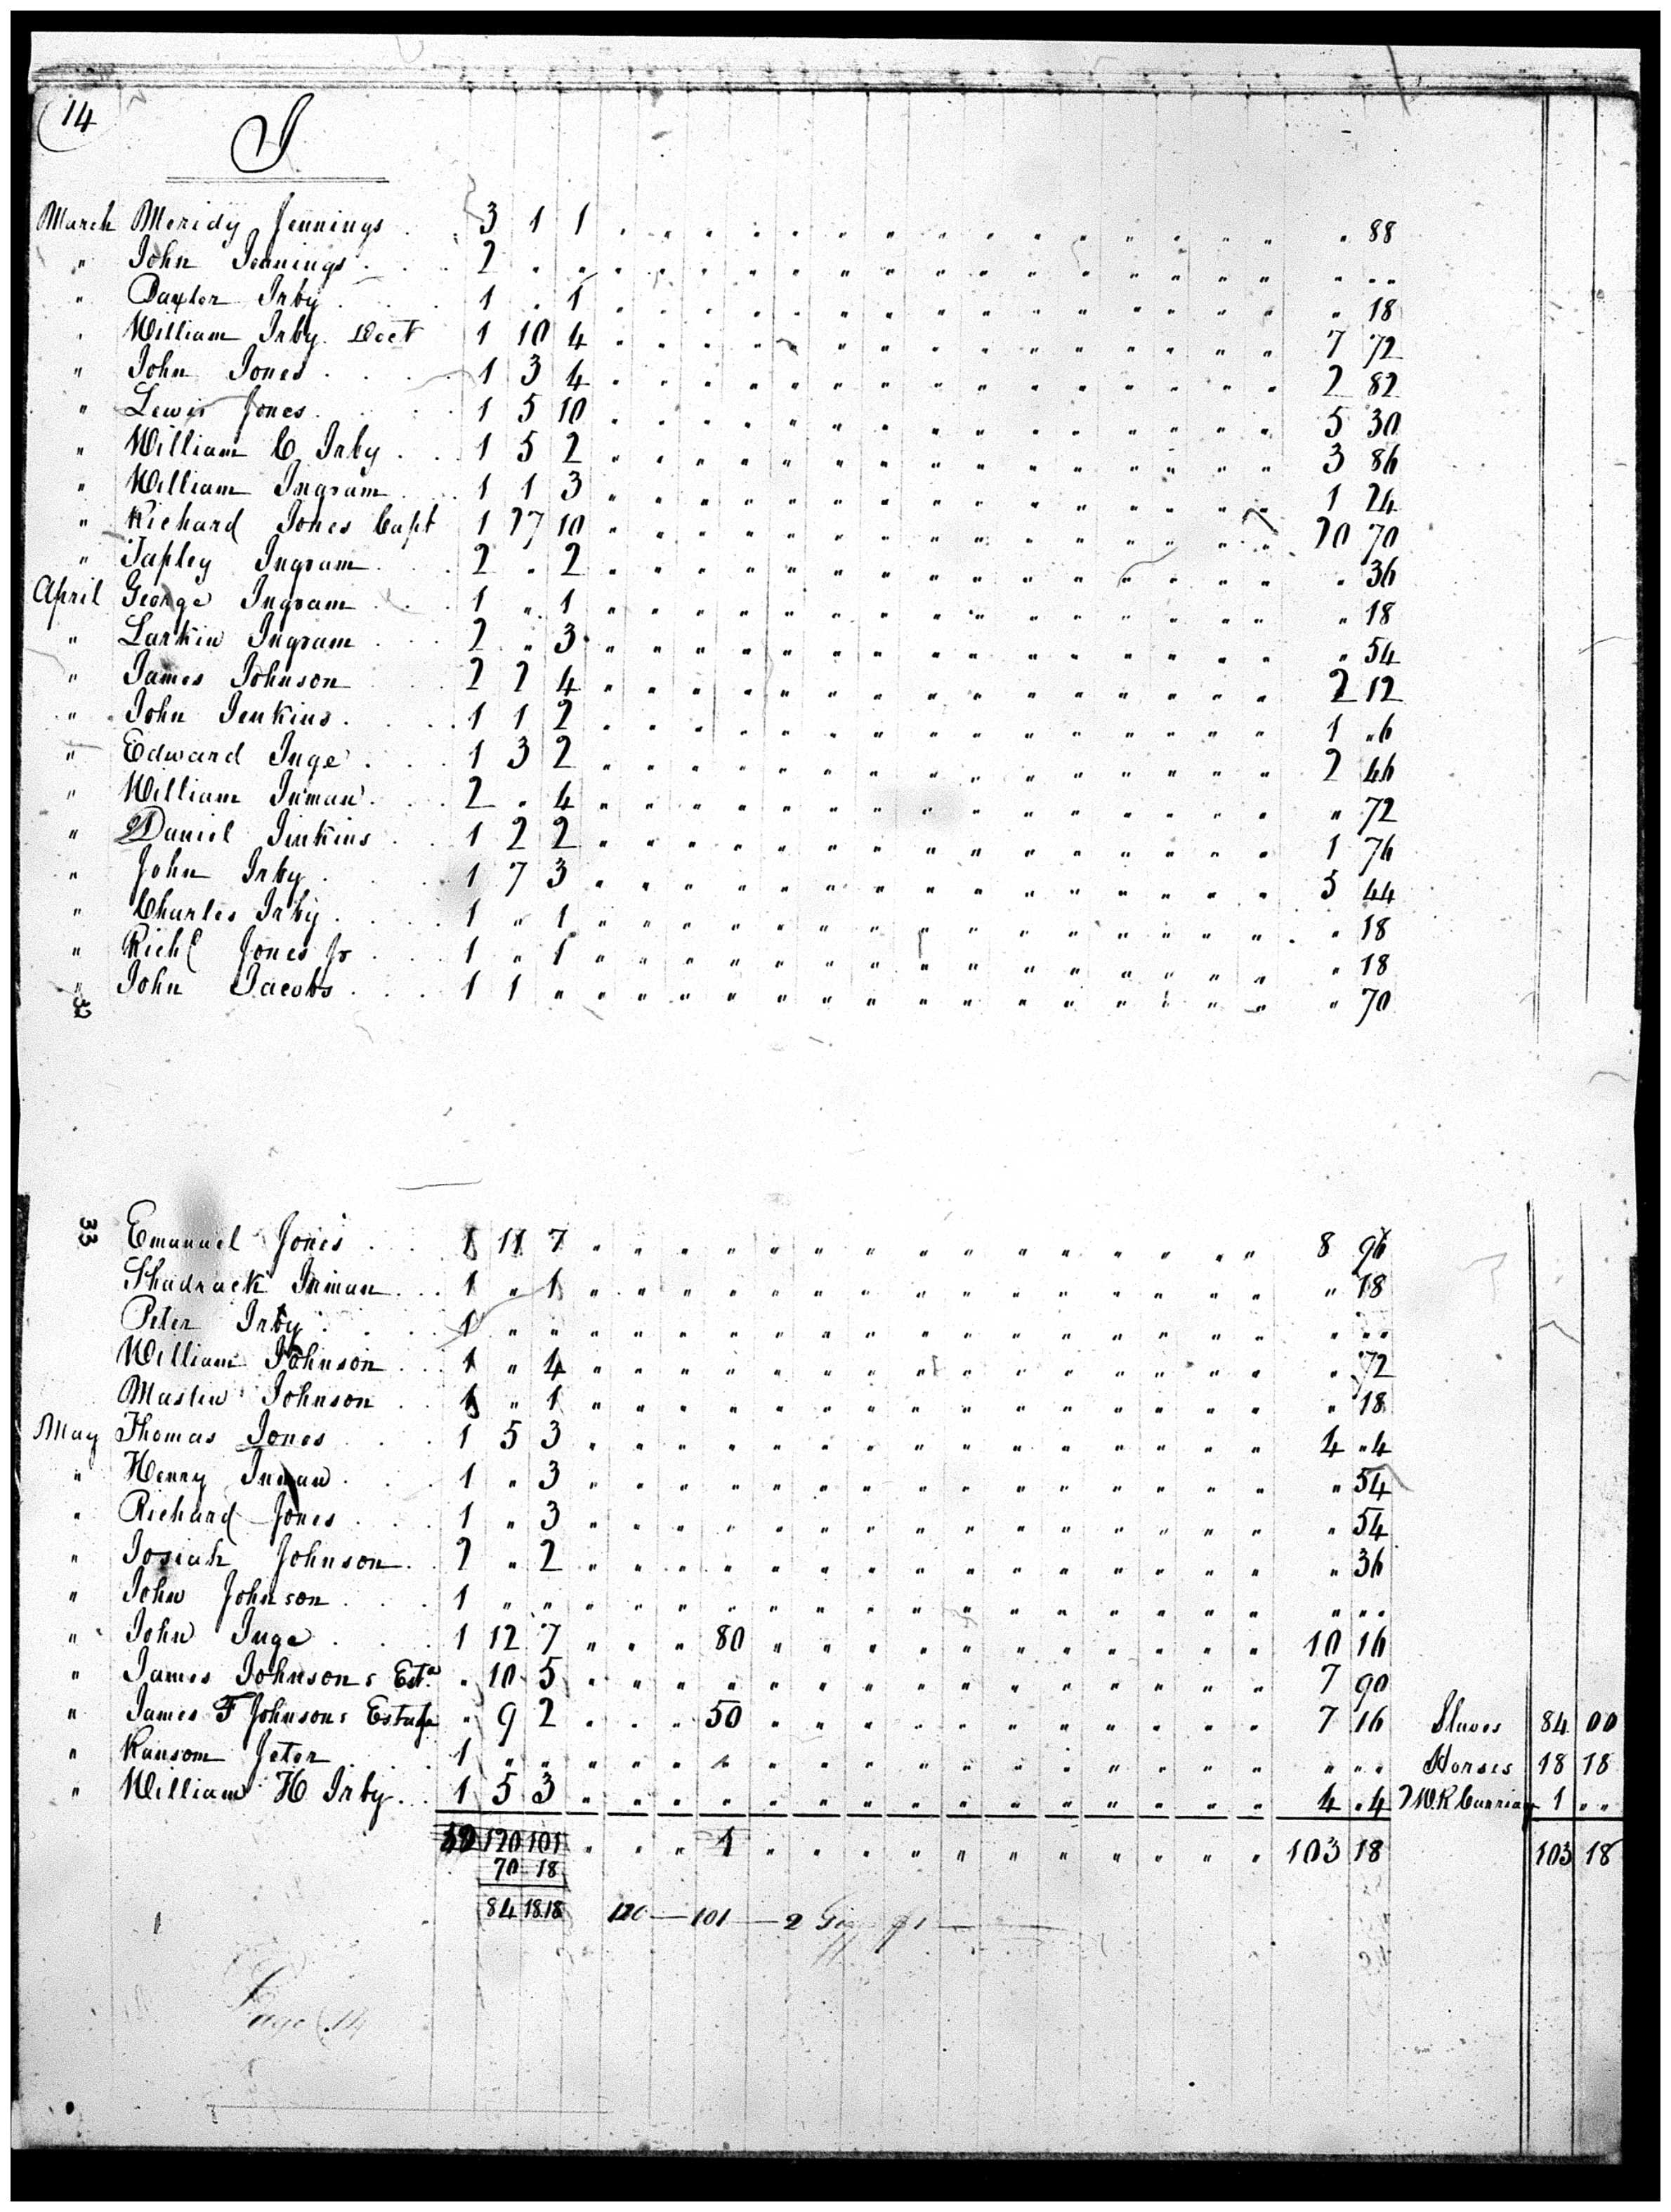 14
J
March Meridy Jennings . 3 1 1 " " " " " " " " " " " " " " " " 88
" John Jennings . . . 2 " " " " " " " " " " " " " " " " " " " "
" Baxter Irby . . . 1 " 1 " " " " " " " " " " " " " " " " 18
" William Irby Doct 1 10 4 " " " " " " " " " " " " " " " 7 72
" John Jones . . . . 1 3 4 " " " " " " " " " " " " " " " 2 82
" Lewis Jones . . . . 1 5 10 " " " " " " " " " " " " " " " 5 30
" William C Irby . . . 1 5 2 " " " " " " " " " " " " " " " 3 86
" William Ingram . . . 1 1 3 " " " " " " " " " " " " " " " 1 24
" Richard Jones Capt 1 27 10 " " " " " " " " " " " " " " " 20 70
" Tapley Ingram . . . 2 " 2 " " " " " " " " " " " " " " " " 36
April George Ingram . . . 1 " 1 " " " " " " " " " " " " " " " " 18
" Larkin Ingram . . . 2 " 3 " " " " " " " " " " " " " " " " 54
" James Johnson . . 2 2 4 " " " " " " " " " " " " " " " 2 12
" John Jenkins . . . 1 1 2 " " " " " " " " " " " " " " " 1 "6
" Edward Inge . . . 1 3 2 " " " " " " " " " " " " " " " 2 46
" William Inman . . . 2 " 4 " " " " " " " " " " " " " " " " 72
" Daniel Jinkins . . 1 2 2 " " " " " " " " " " " " " " " 1 76
" John Irby . . . . 1 7 3 " " " " " " " " " " " " " " " 5 44
" Charles Irby . . . . 1 " 1 " " " " " " " " " " " " " " " " 18
" Richd Jones Jr . . . 1 " 1 " " " " " " " " " " " " " " " " 18
" John Jacobs . . . . 1 1 " " " " " " " " " " " " " " " " " 70
33
33
Emanuel Jones . . . 1 11 7 " " " " " " " " " " " " " " " 8 96
Shadrack Inman . . . 1 " 1 " " " " " " " " " " " " " " " " 18
Peter Irby . . . . 1 " " " " " " " " " " " " " " " " " " " "
William Johnson . . 1 " 4 " " " " " " " " " " " " " " " " 72
Maslin Johnson . . 1 " 1 " " " " " " " " " " " " " " " " 18
May Thomas Jones . . . 1 5 3 " " " " " " " " " " " " " " " 4 "4
" Henry Inman . . . 1 " 3 " " " " " " " " " " " " " " " " 54
" Richard Jones . . . 1 " 3 " " " " " " " " " " " " " " " " 54
" Josiah Johnson . . 2 " 2 " " " " " " " " " " " " " " " " 36
" John Johnson . . . 1 " " " " " " " " " " " " " " " " " " " "
" John Inge . . . . 1 12 7 " " " 80 " " " " " " " " " " " 10 16
" James Johnsons Esta " 10 5 " " " " " " " " " " " " " " " 7 90
" James F Johnsons Estate " 9 2 " " " 50 " " " " " " " " " " " 7 16 Slaves 84 00
" Ransom Jeter . . . 1 " " " " " " " " " " " " " " " " " " " " Horses 18 18
" William H Irby . . 1 5 3 " " " " " " " " " " " " " " " 4 "4 2 W R Carriag 1 " "
120 101 " " " 1 " " " " " " " " " " " 103 18 103 18
70 18
84 18.18 120 — 101 — 2
Page 14